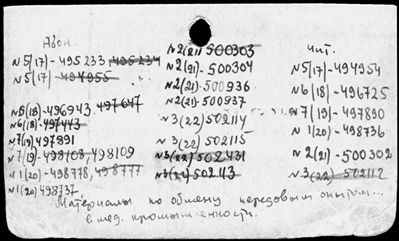 Абон.
N5(17)-495233 495234
N5(17)-494955
N5(18)-496943 497647
N6(18)-497443
N7(19)497891
N7(19)-498108, 498109
N1(20)-498778, 498777
N1(20)498737
N2(21)500303
N2(21)-500304
N2(21)-500936
N2(21)-500937
N3(22)502114
N3(22)502115
N3(22)502431
N3(22)502113
чит.
N5(17)-494954
N6(18)-496725
N7(19)-497890
N1(20)-498736
N2(21)-500302
N3(22)-502112
Материалы по обмену передовым опытом...
в мед. промышленности.